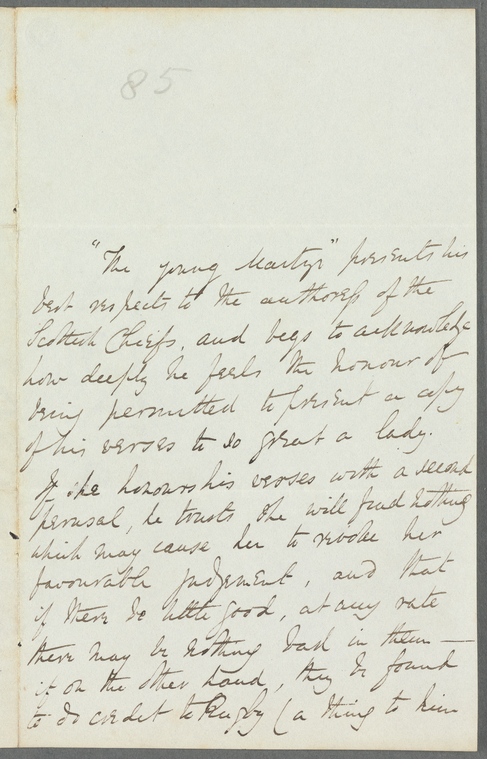 85
"The young Martyr" presents his
best respects to the authoress of the
Scottish Chiefs, and begs to acknowledge
how deeply he feels the honour of
being permitted to present a copy
of his verses to so great a lady.
If she honours his verses with a second
perusal, he trusts she will find nothing
which may cause her to revoke her
favourable judgement, and that
if there be little good, at any rate
there may be nothing bad in them —
if on the other hand, they be found
to do credit to Rugby (a thing to him